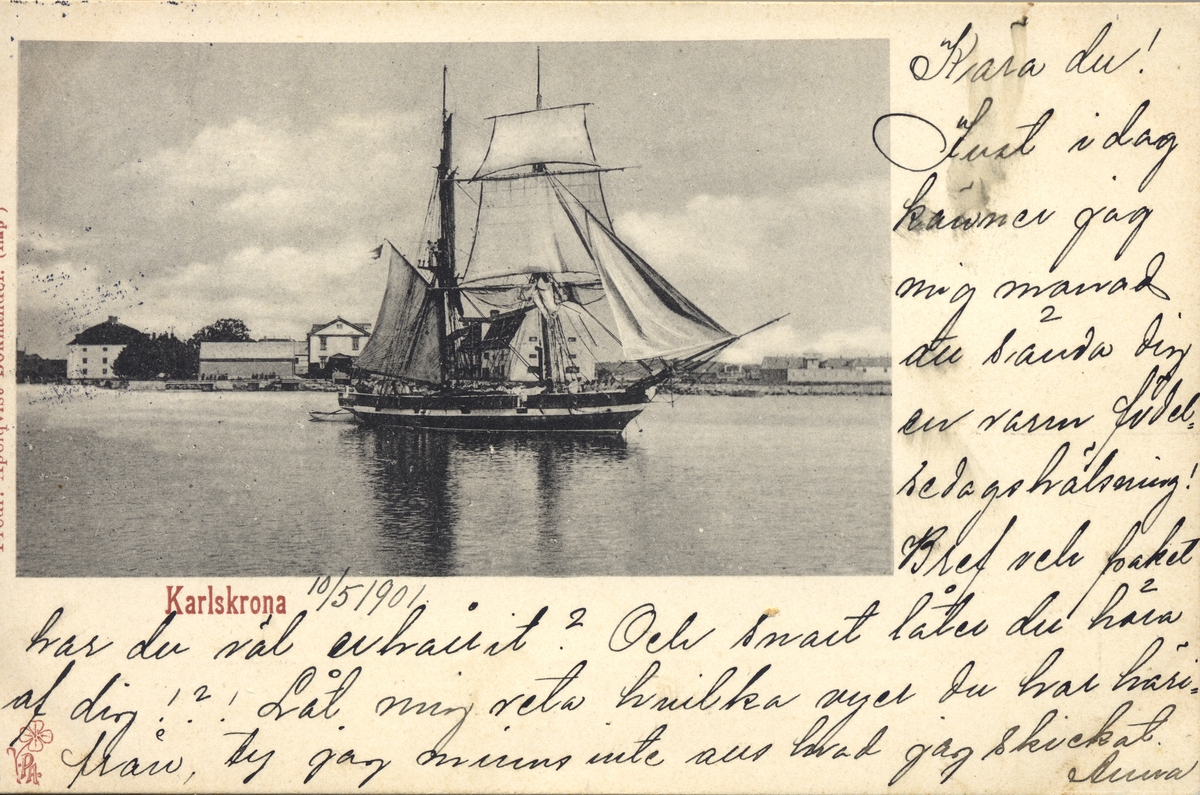 Kära du!
Just i dag
känner jag
mig manad
att sända dig
en varm födel=
sedagshälsning!
Bref och paket
Karlskrona 10/5 1901.
har du väl erhållit? Och snart låter du höra
af dig!?! Låt mig veta hvilka vyer du har häri=
från, ty jag minns inte ens hvad jag skickat.
Anna
V.P.A.